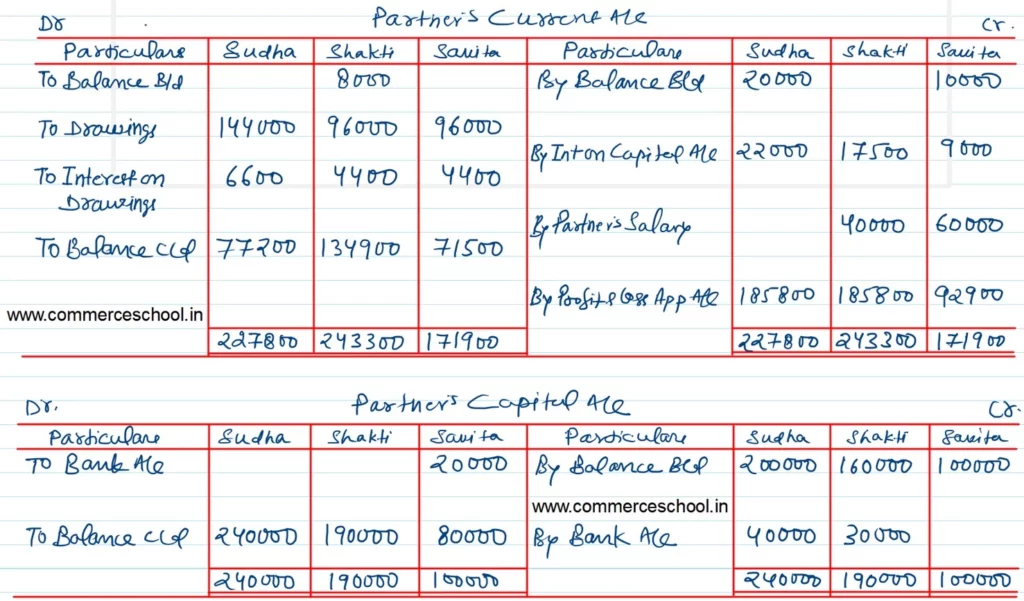 Partner's Current A/c
Dr Cr.
Particulars Sudha Shakti Savita Particulars Sudha Shakti Savita
To Balance B/d 8000 By Balance B/d 20000 10000
To Drawings 144000 96000 96000
By Int on Capital A/c 22000 17500 9000
To Interest on 6600 4400 4400
Drawings
By Partner's Salary 40000 60000
To Balance C/d 77200 134900 71500
By Profit & Loss App A/c 185800 185800 92900
www.commerceschool.in
227800 243300 171900 227800 243300 171900
Partner's Capital A/c
Dr. Cr.
Particulars Sudha Shakti Savita Particulars Sudha Shakti Savita
To Bank A/c 20000 By Balance B/d 200000 160000 100000
www.commerceschool.in
To Balance C/d 240000 190000 80000 By Bank A/c 40000 30000
240000 190000 100000 240000 190000 100000